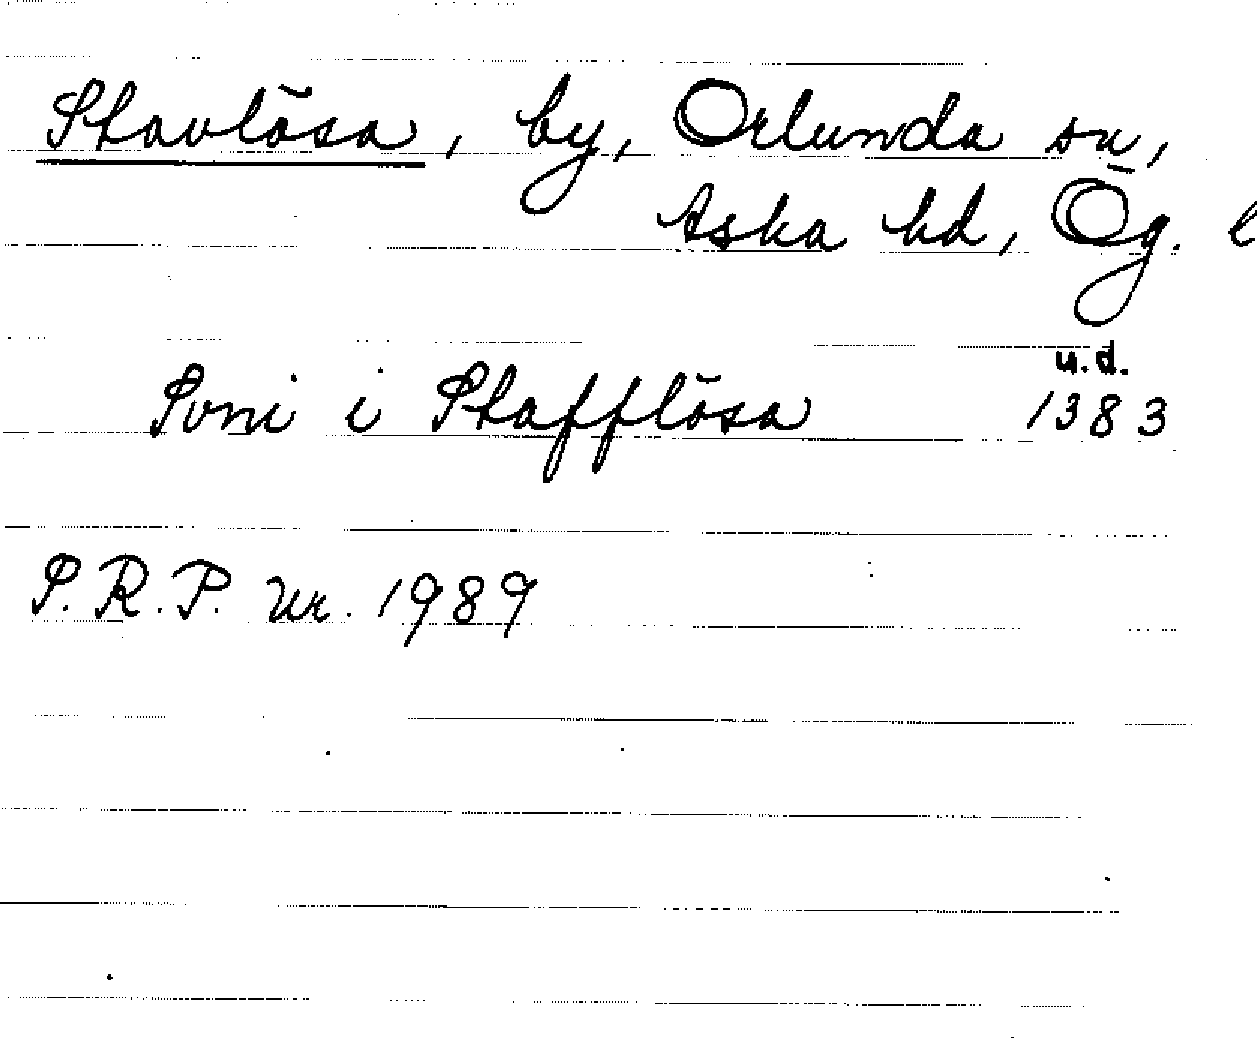 Stavlösa, by, Orlunda sn,
Aska hd, Ög. l
u.d.
Soni i Stafflösa 1383
S.R.P. nr. 1989